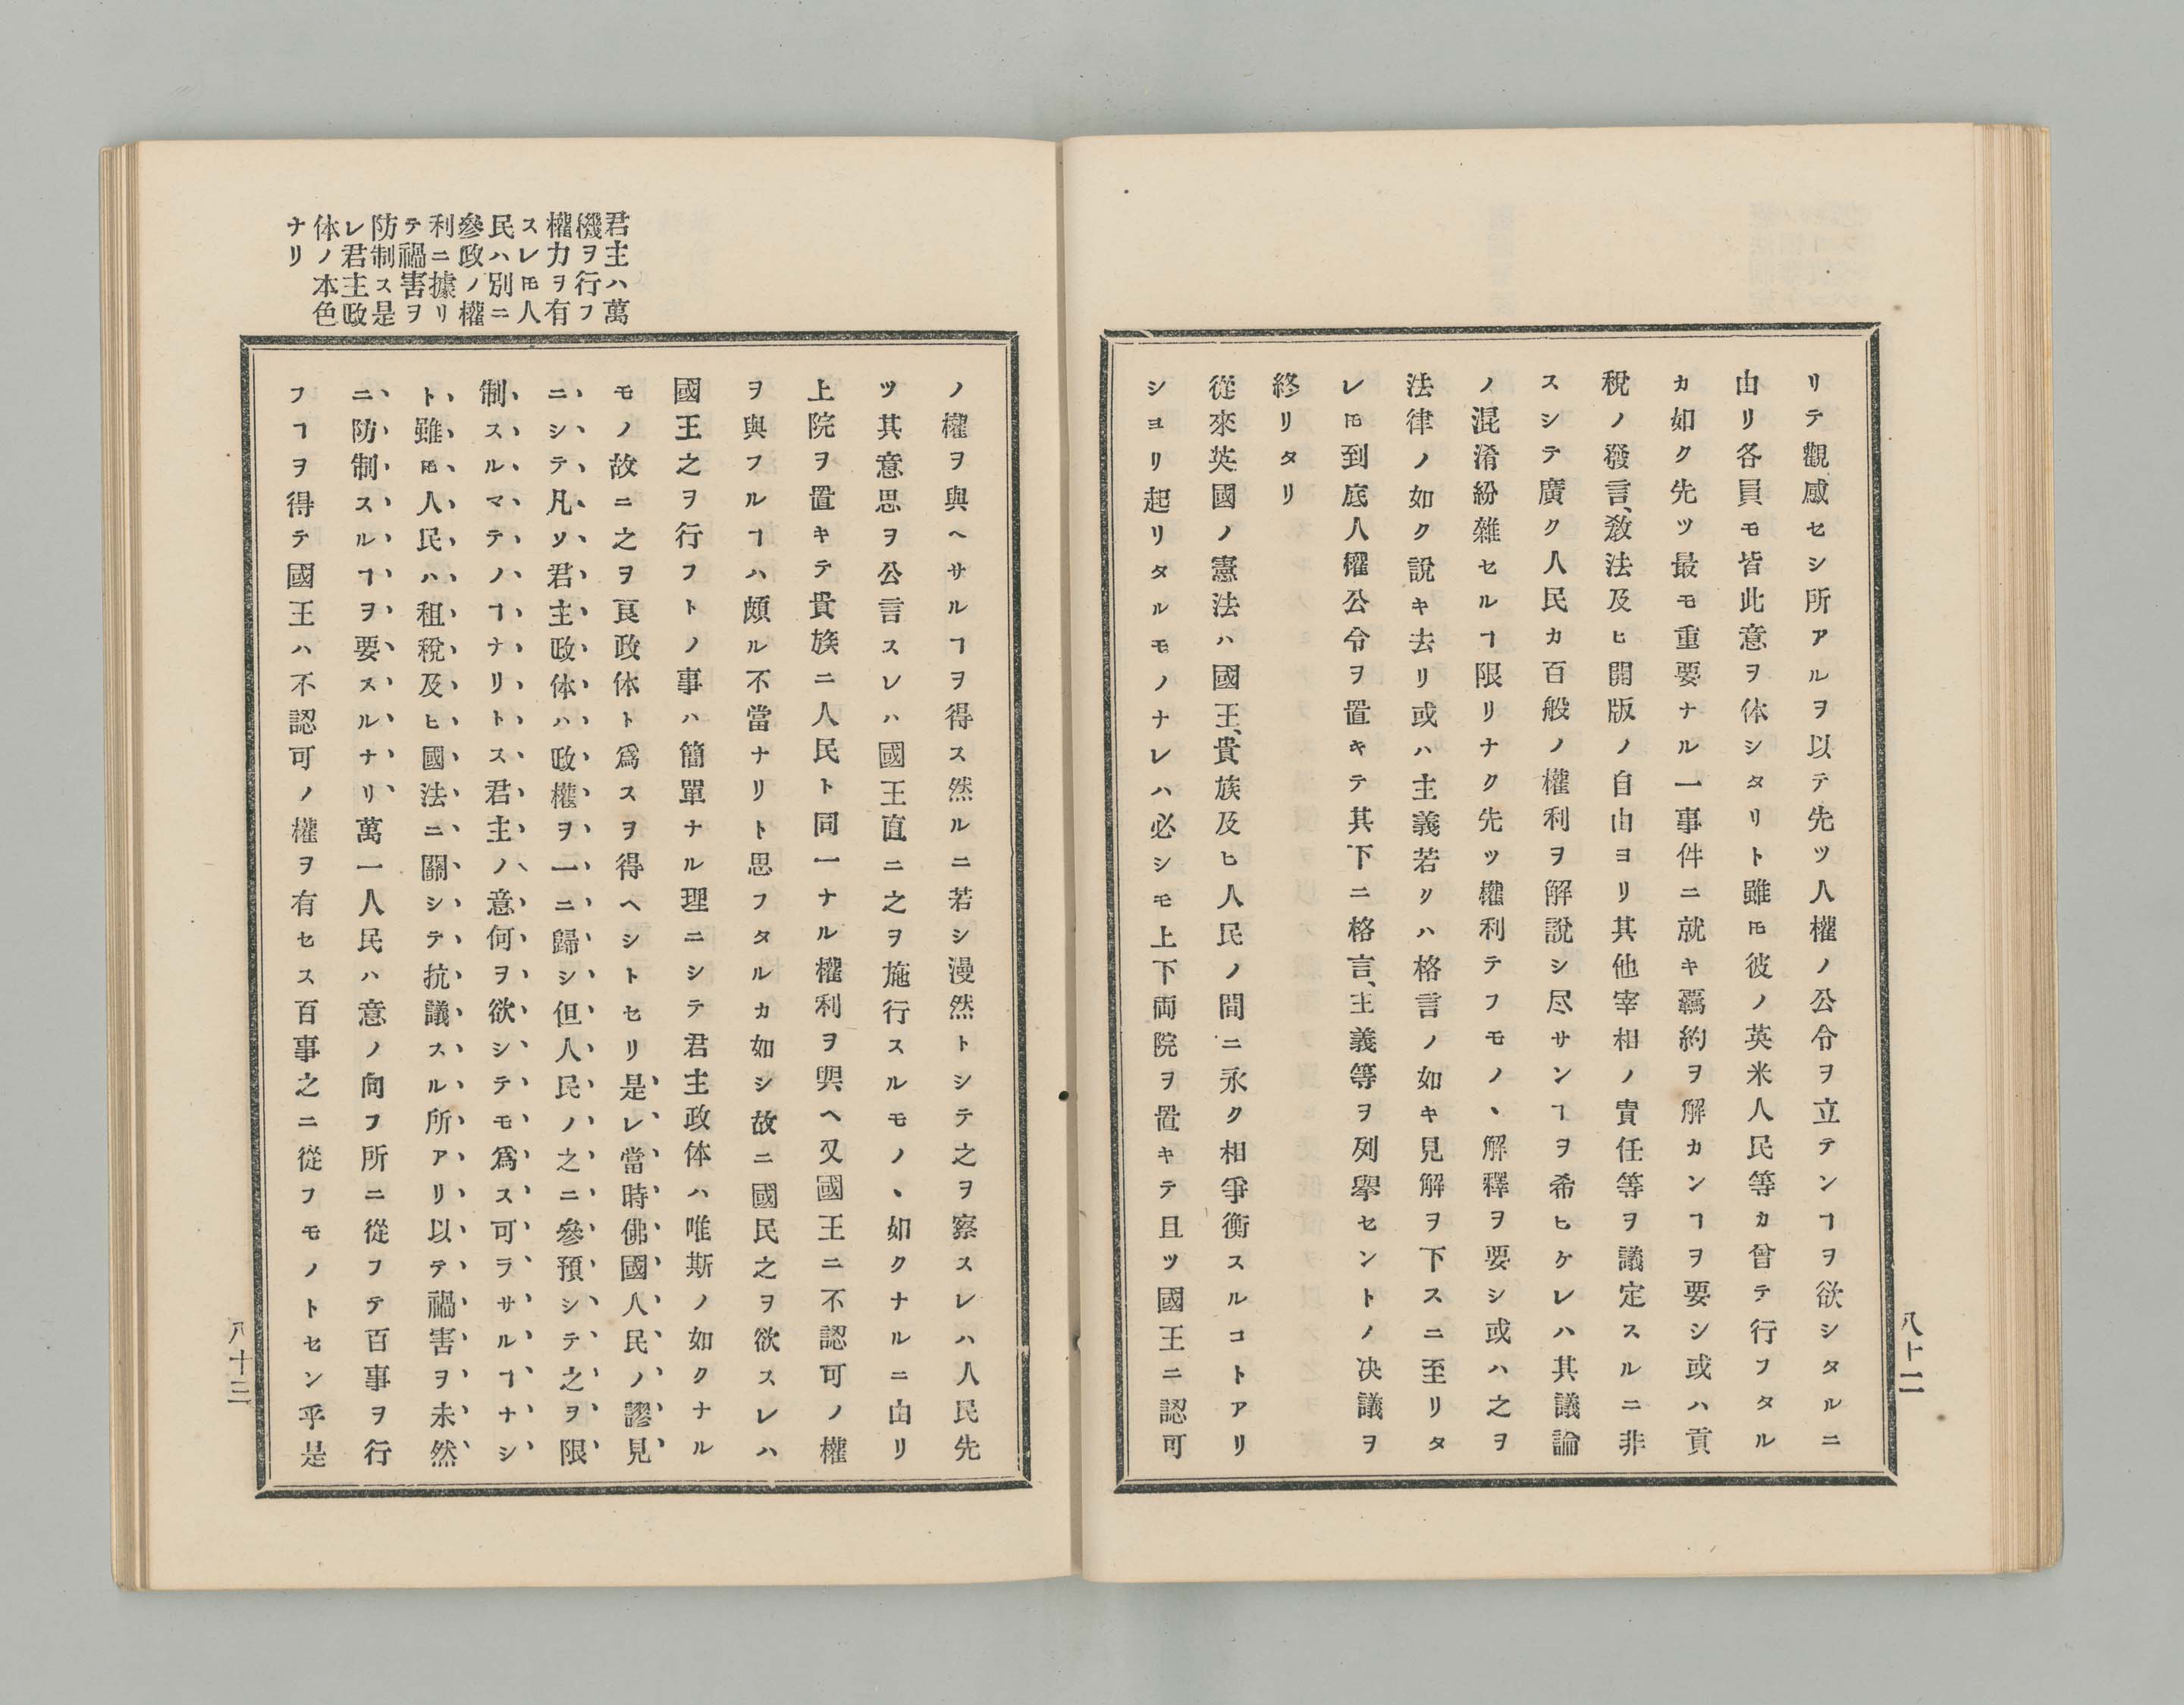 リテ觀感セシ所アルヲ以テ先ツ人權ノ公令ヲ立テンヿヲ欲シタルニ
由リ各員モ皆此意ヲ体シタリト雖𪜈彼ノ英米人民等カ曾テ行フタル
カ如ク先ツ最モ重要ナル一事件ニ就キ羈約ヲ解カンヿヲ要シ或ハ貢
稅ノ發言、敎法及ヒ開版ノ自由ヨリ其他宰相ノ責任等ヲ議定スルニ非
スシテ廣ク人民カ百般ノ權利ヲ解說シ尽サンヿヲ希ヒケレハ其議論
ノ混淆紛雜セルヿ限リナク先ツ權利テフモノヽ解釋ヲ要シ或ハ之ヲ
法律ノ如ク說キ去リ或ハ主義若クハ格言ノ如キ見解ヲ下スニ至リタ
レ𪜈到底人權公令ヲ置キテ其下ニ格言、主義等ヲ列擧セントノ决議ヲ
終リタリ
從來英國ノ憲法ハ國王、貴族及ヒ人民ノ間ニ永ク相爭衡スルコトアリ
シヨリ起リタルモノナレハ必シモ上下両院ヲ置キテ且ツ國王ニ認可
八十二
君主ハ萬
機ヲ行フ
權力ヲ有
スレ𪜈人
民ハ別ニ
參政ノ權
利ニ據リ
テ禍害ヲ
防制ス是
レ君主政
体ノ本色
ナリ
ノ權ヲ與ヘサルヿヲ得ス然ルニ若シ漫然トシテ之ヲ察スレハ人民先
ツ其意思ヲ公言スレハ國王直ニ之ヲ施行スルモノヽ如クナルニ由リ
上院ヲ置キテ貴族ニ人民ト同一ナル權利ヲ與ヘ又國王ニ不認可ノ權
ヲ與フルヿハ頗ル不當ナリト思フタルカ如シ故ニ國民之ヲ欲スレハ
國王之ヲ行フトノ事ハ簡單ナル理ニシテ君主政体ハ唯斯ノ如クナル
モノ故ニ之ヲ良政体ト爲スヲ得ヘシトセリ是レ當時佛國人民ノ謬見
ニシテ凡ソ君主政体ハ政權ヲ一ニ歸シ但人民ノ之ニ參預シテ之ヲ限
制スルマテノヿナリトス君主ノ意何ヲ欲シテモ爲ス可ラサルヿナシ
ト雖𪜈人民ハ租稅及ヒ國法ニ關シテ抗議スル所アリ以テ禍害ヲ未然
ニ防制スルヿヲ要スルナリ萬一人民ハ意ノ向フ所ニ從フテ百事ヲ行
フヿヲ得テ國王ハ不認可ノ權ヲ有セス百事之ニ從フモノトセン乎是
八十三